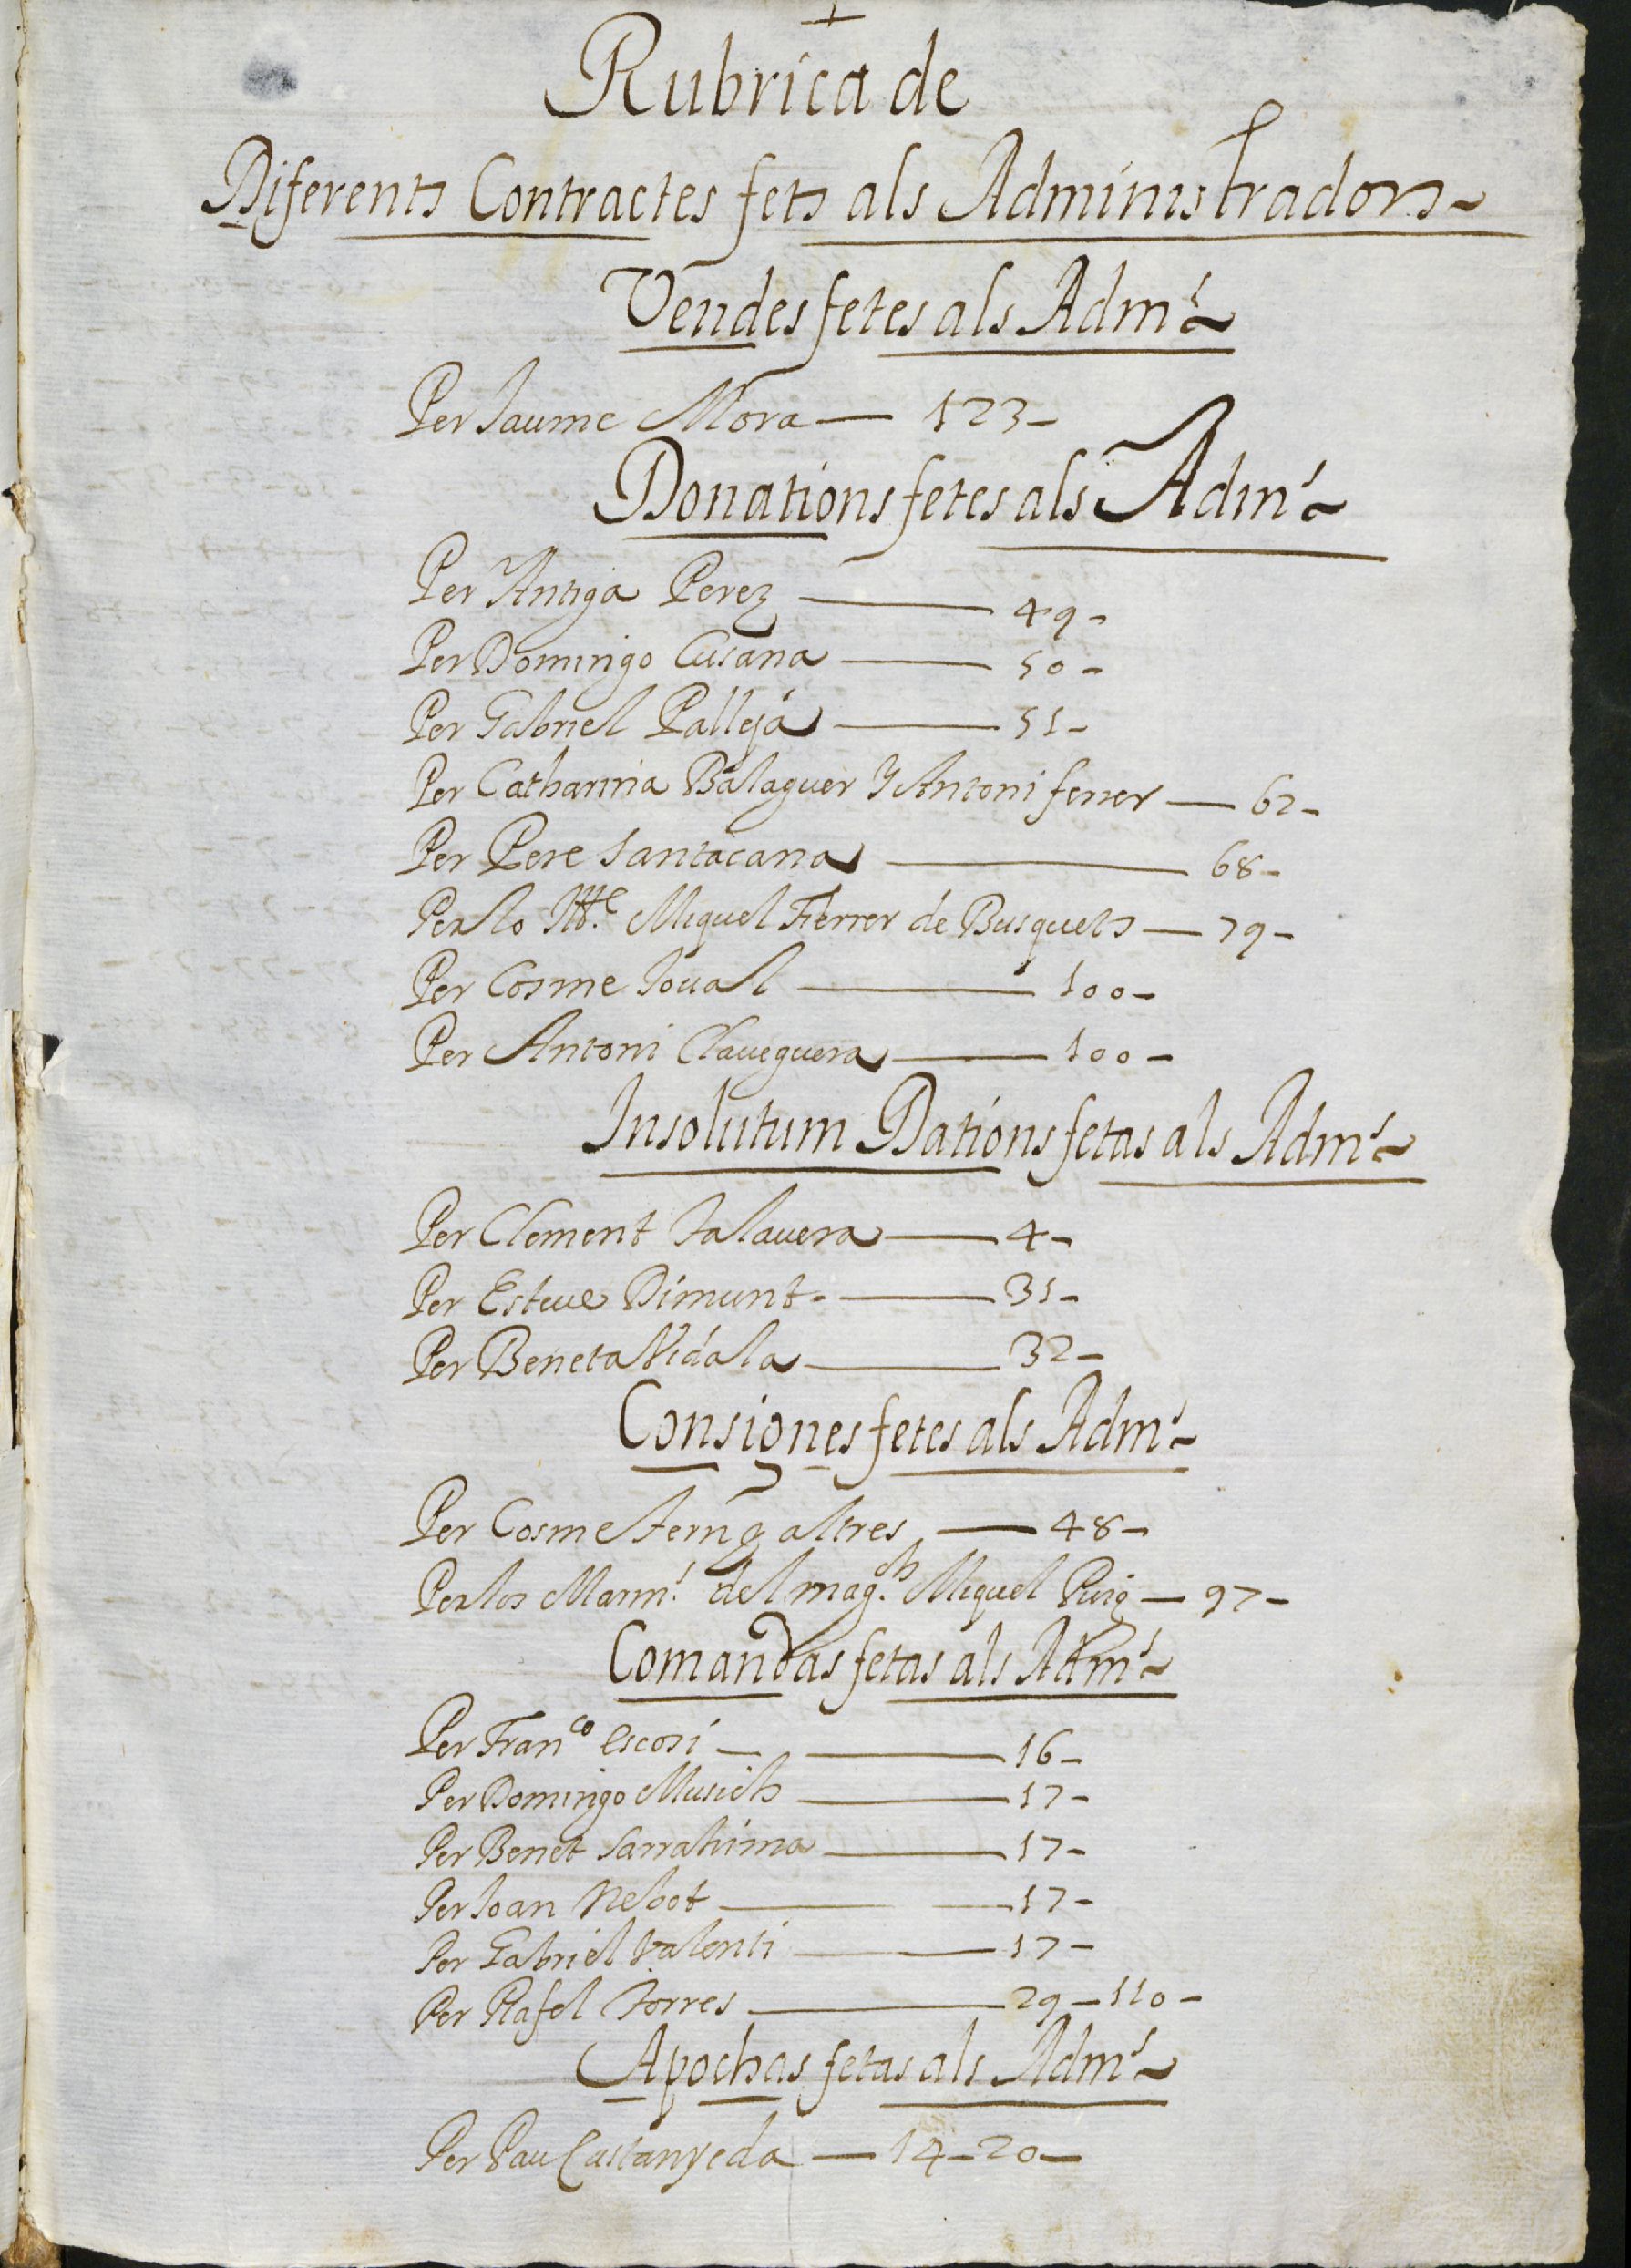 +
Rubrica de
Diferents Contractes fets als Administradors
Vendes fetes als Adm.rs
Per Jaume Mora — 123 -
Donations fetes als Adm.rs
Per Antiga Perez — 49 -
Per Domingo Cusana — 50 -
Per Gabriel Pallejà — 51 -
Per Catharina Balaguer y Antoni ferrer — 62 -
Per Pere Santacana — 68 -
Per lo Miquel Ferrer de Busquets — 79 -
Per Cosme Joval — 100 -
Per Antoni Claveguera — 100 -
Insolutum Dations fetas als Adm.rs
Per Clement Talavera — 4 -
Per Esteve Dimunt — 31 -
Per Beneta Vidala — 32 -
Consignes fetes als Adm.rs
Per Cosme altres — 48 -
Per los Marm.rs del mag.ch Miquel Puig — 97 -
Comandas fetas als Adm.rs
Per Fran.co Escosi — 16 -
Per Domingo Musich — 17 -
Per Benet Sarrahima — 17 -
Per Joan Nebot — 17 -
Per Gabriel Valenti — 17 -
Per Rafel Torres — 29 - 110 -
Apochas fetas als Adm.rs
Per Pau Castanyeda — 14 - 20 -